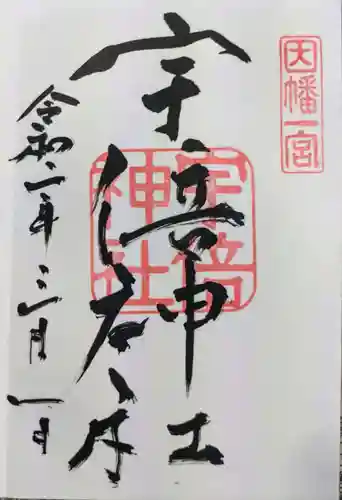 因幡一宮
宇倍神社
宇倍
神社
令和二年三月一日